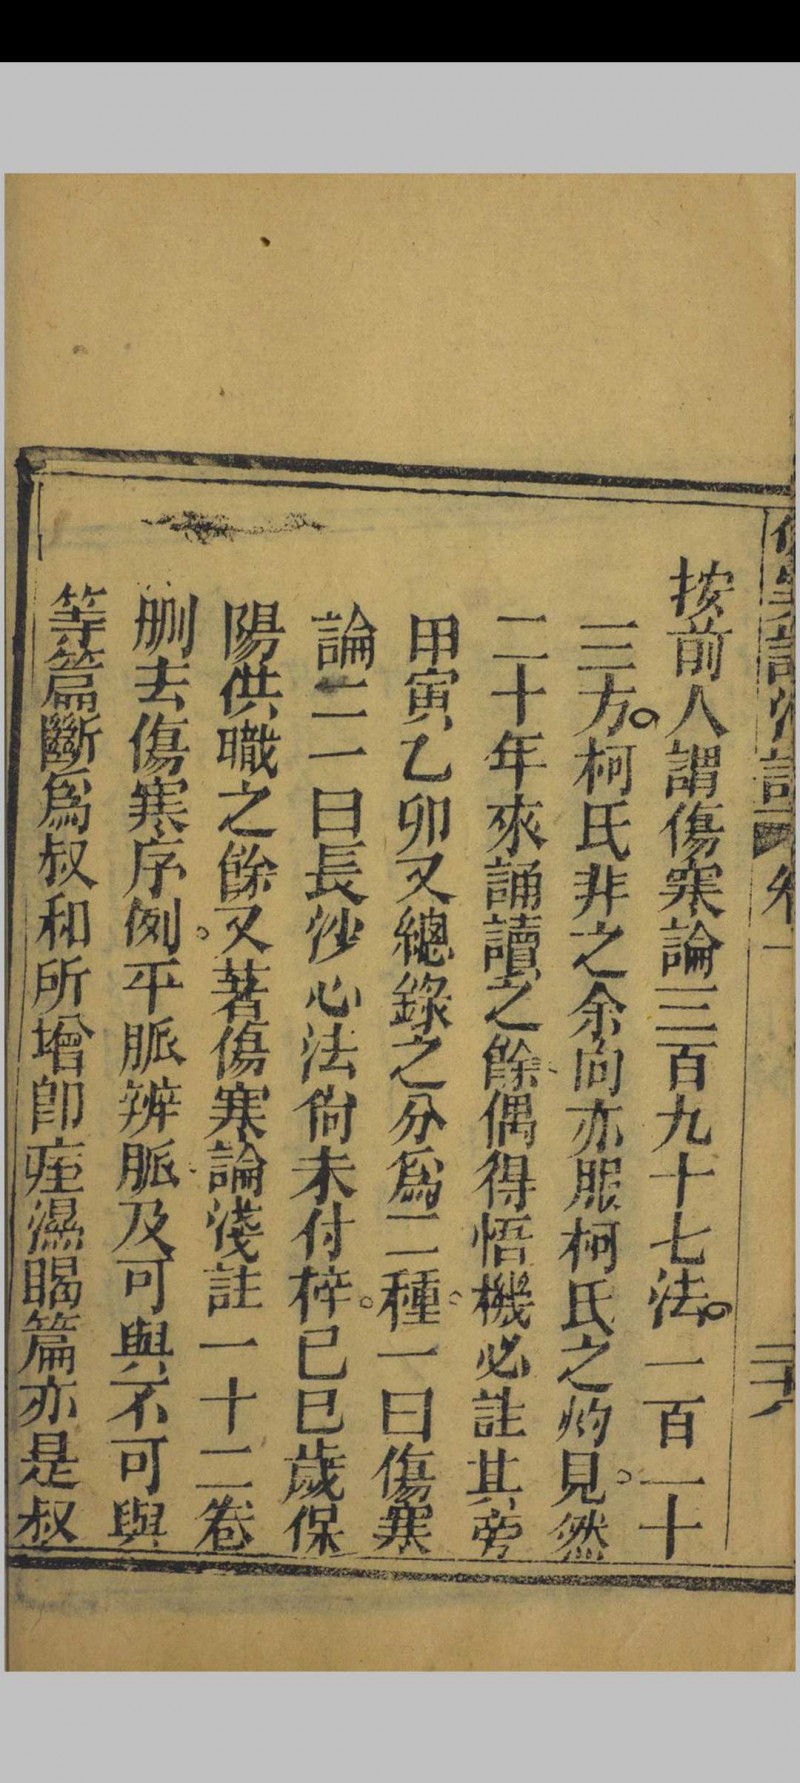 按前人謂傷寒論三百九十七法。一百一十
三方。柯氏非之余向亦服柯氏之灼見。然
二十年來誦讀之餘偶得悟機必註其旁
甲寅乙卯又總錄之分爲二種。一曰傷寒
論註一曰長沙心法尙未付梓。己巳歲保
陽供職之餘。又著傷寒論淺註一十二卷
删去傷寒序例。平脈辨脈及可與不可與
等篇斷爲叔和所增卽痓濕暍篇亦是叔